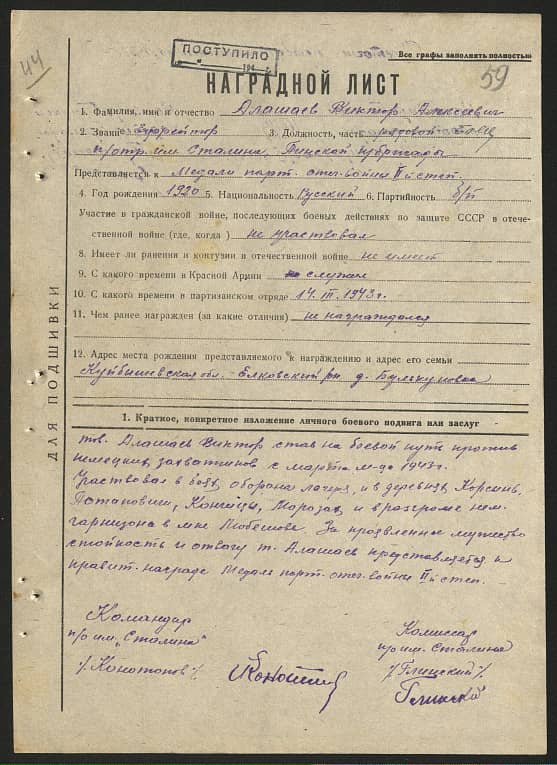 44
ПОСТУПИЛО
194
Все графы заполнять полностью
59
НАГРАДНОЙ ЛИСТ
1. Фамилия, имя и отчество Алашаев Виктор Алексеевич
2. Звание Ефрейтор 3. Должность, часть рядовой боец
п/отр. им. Сталина, Пинской п/бригады
Представляется к Медали парт. отеч. войны II й степ.
4. Год рождения 1920 5. Национальность Русский 6. Партийность б/п
Участие в гражданской войне, последующих боевых действиях по защите СССР в отече-
ственной войне (где, когда) не участвовал
8. Имеет ли ранения и контузии в отечественной войне не имеет
9. С какого времени в Красной Армии служил
10. С какого времени в партизанском отряде 14. III. 1943 г.
11. Чем ранее награжден (за какие отличия) не награждался
12. Адрес места рождения представляемого к награждению и адрес его семьи
Куйбышевская обл. Елховский рн д.
ДЛЯ ПОДШИВКИ
1. Краткое, конкретное изложение личного боевого подвига или заслуг
тов. Алашаев Виктор стал на боевой путь против
немецких захватчиков с марта м-ца 1943 г.
Участвовал в боях обороны лагеря, и в деревнях Корсынь,
Потаповичи, Кончицы, Морозах и в разгроме нем.
гарнизона в м-ке Любешове. За проявленное мужество
стойкость и отвагу т. Алашаев представляется к
правит. награде Медали парт. отеч. войны II й степ.
Командир
п/о им. „Сталина"
/Конотопов/
Комиссар
п/о им. Сталина
/Глицский/